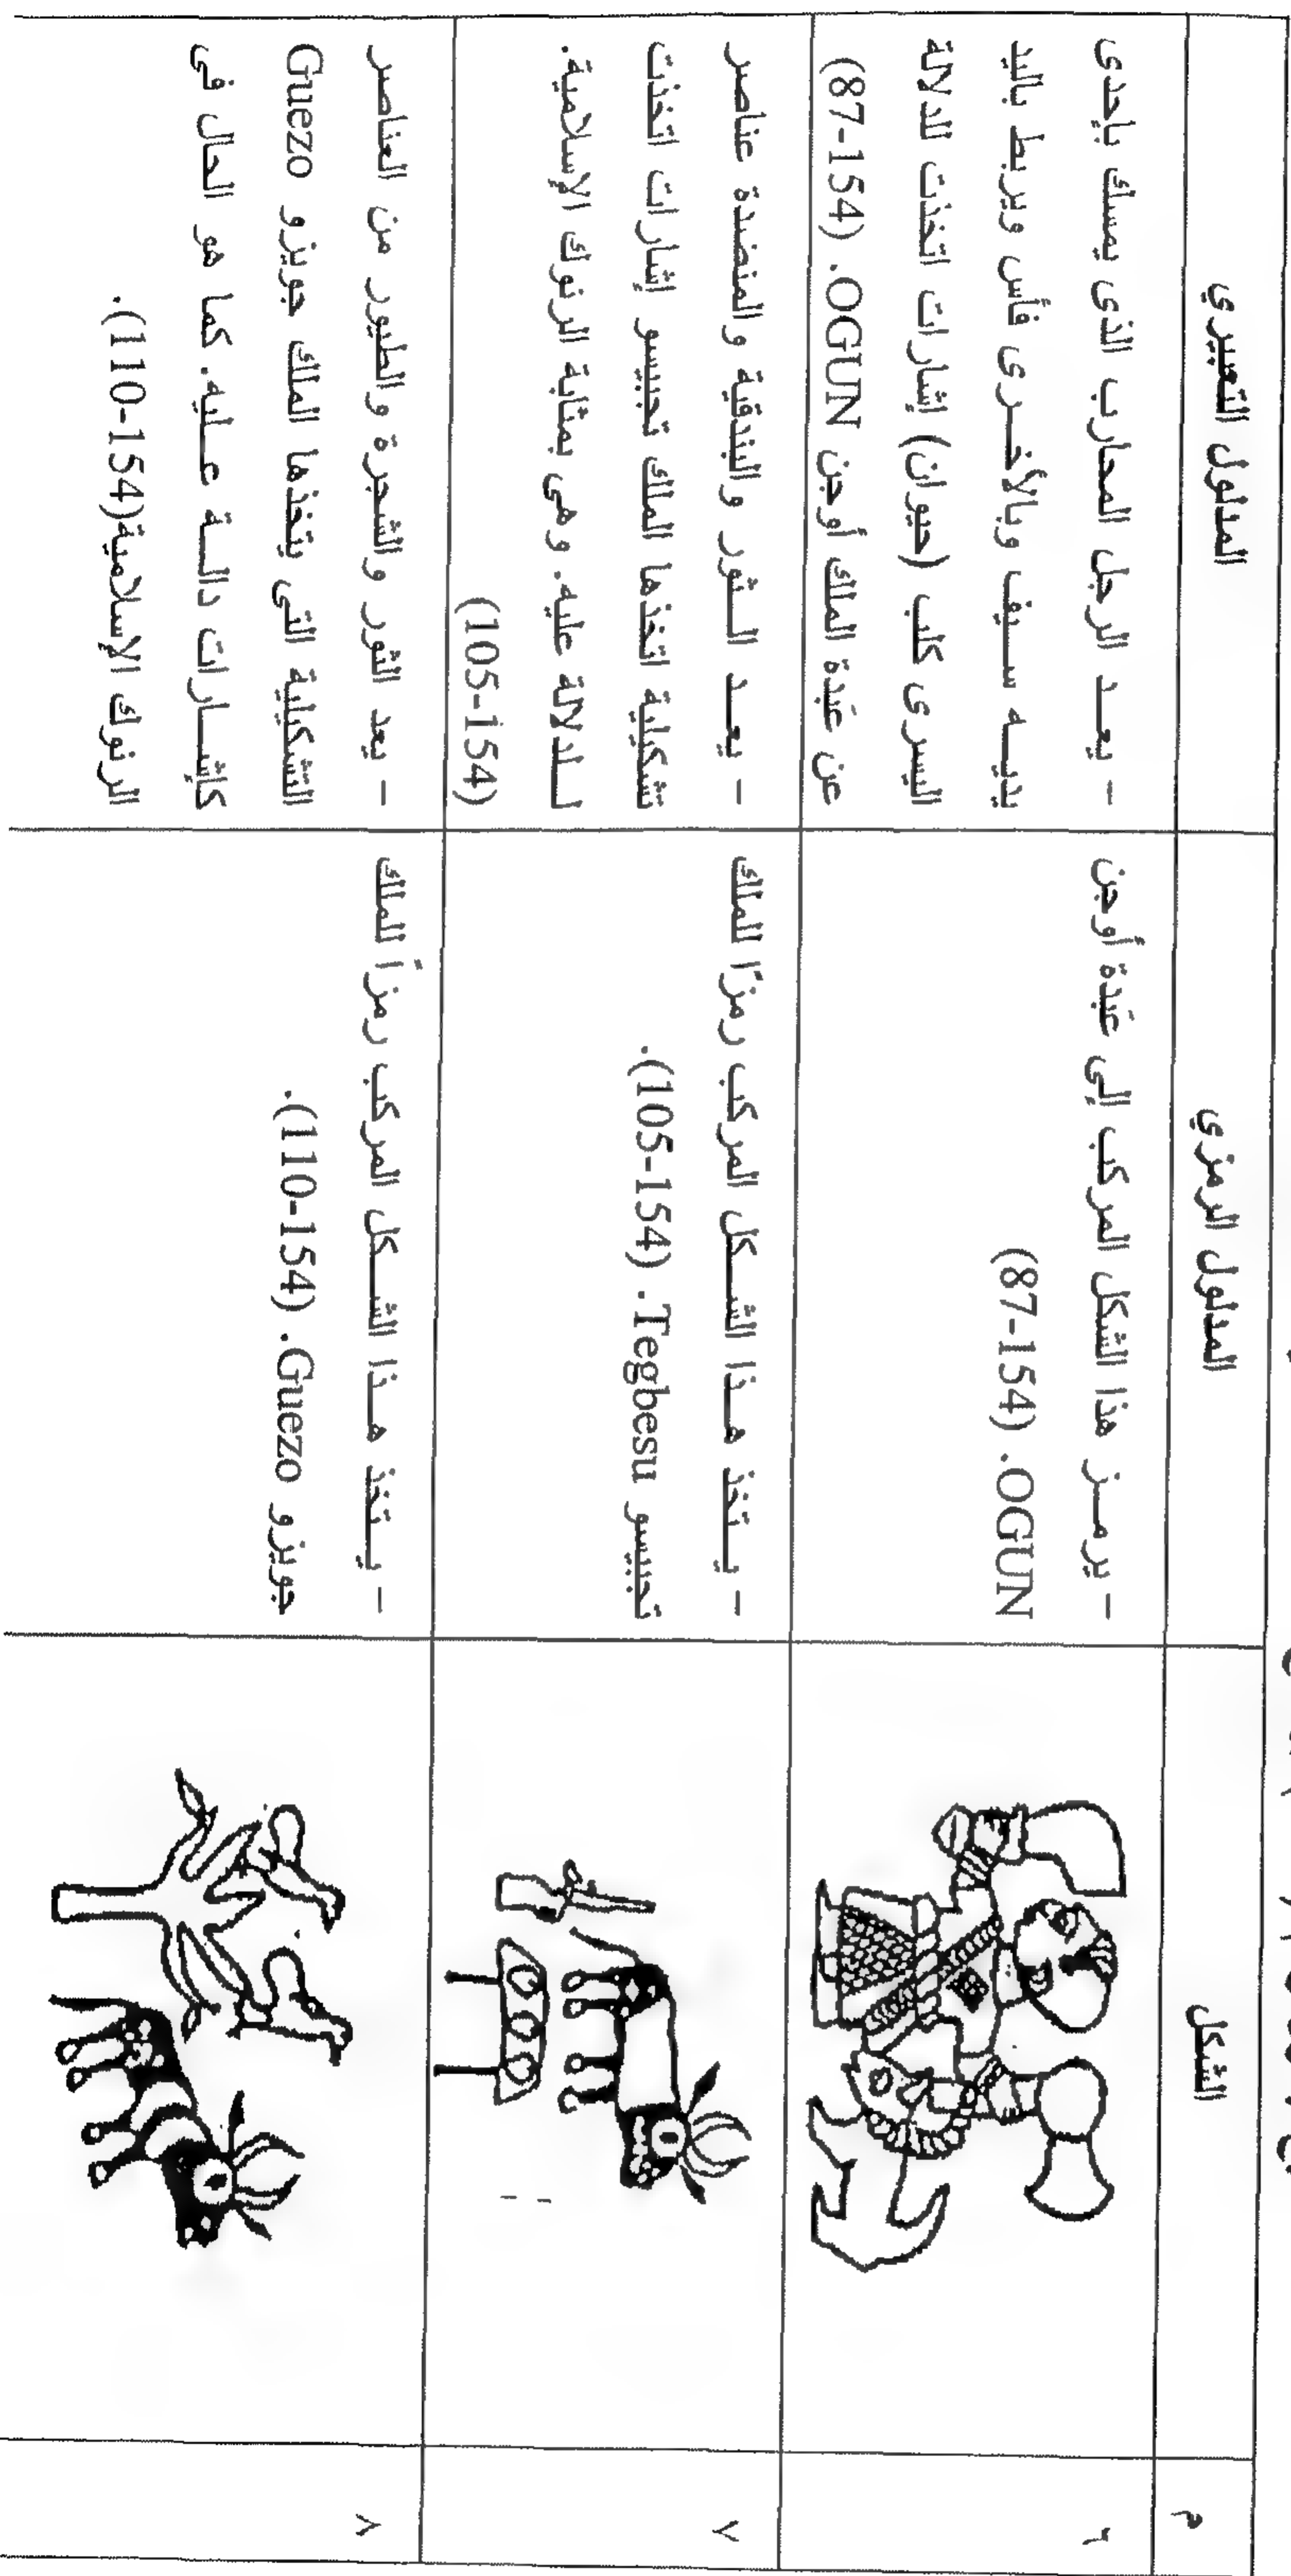 م
الشكل
المدلول الرمزي
المدلول التعبيري
٦
- يرمـــز هذا الشكل المركب إلى عَبَدة أوجن
OGUN. (87-154)
- يعـــد الرجل المحارب الذى يمسك بإحدى
يديـــه ســـيف وبالأخـــرى فأس ويربط باليد
اليسرى كلب (حيوان) إشارات اتخذت للدلالة
عن عَبَدة الملك أوجن OGUN. (87-154)
٧
- يـــتخذ هـــذا الشـــكل المركب رمزًا للملك
تجبيسو Tegbesu. (105-154).
- يعـــد الـــثور والبندقية والمنضدة عناصر
تشكيلية اتخذها الملك تجبيسو إشارات اتخذت
لـــلدلالة عليه. وهى بمثابة الرنوك الإسلامية.
(105-154)
٨
- يـــتخذ هـــذا الشـــكل المركب رمزاً للملك
جويزو Guezo. (110-154).
- يعد الثور والشجرة والطيور من العناصر
التشكيلية التى يتخذها الملك جويزو Guezo
كإشـــارات دالـــة عـــليه. كما هو الحال فى
الرنوك الإسلامية(110-154).